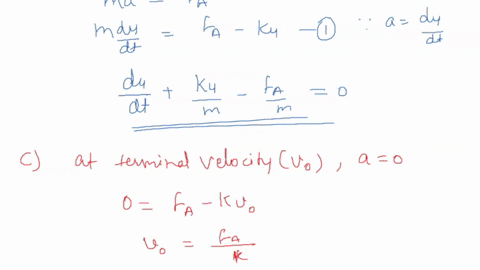 ma = FA
m du/dt = FA - ku — ① ∵ a = du/dt
du/dt + ku/m - FA/m = 0
C) at terminal velocity (v₀), a = 0
0 = FA - kv₀
v₀ = FA/k